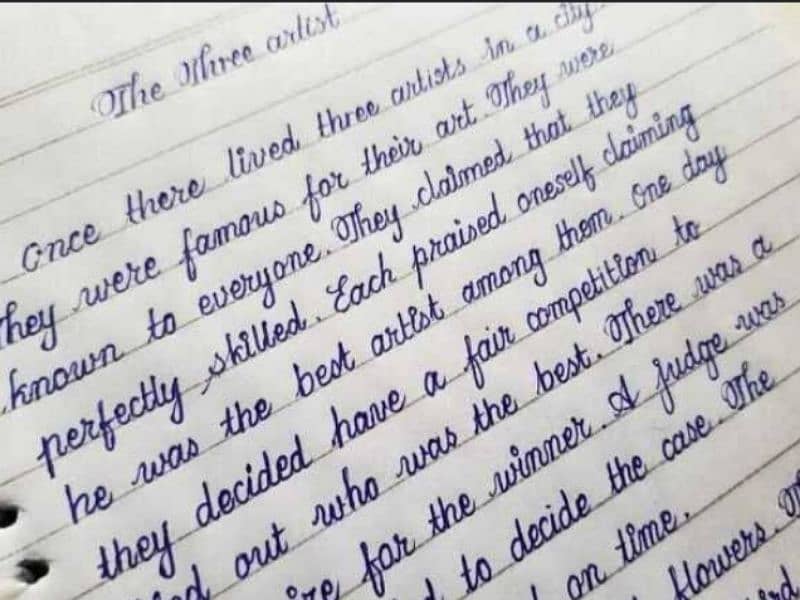 The Three artist
Once there lived three artists in a city
They were famous for their art. They were
known to everyone. They claimed that they
perfectly skilled. Each praised oneself claiming
he was the best artist among them. One day
they decided have a fair competition to
out who was the best. There was a
for the winner. A judge was
to decide the case. The
on time.
flowers.